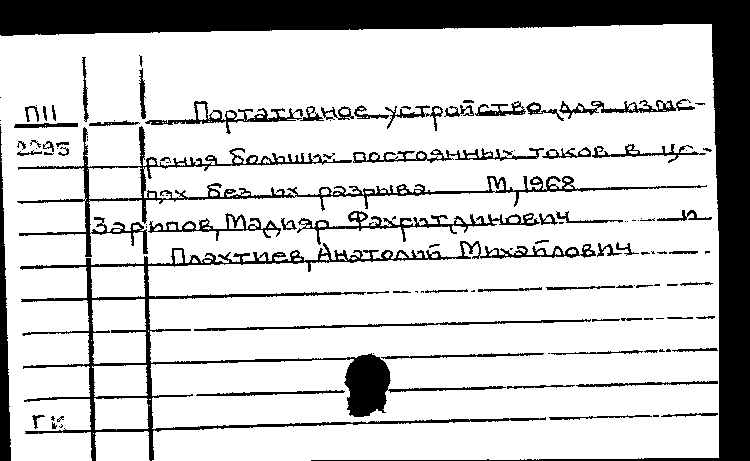 П11 Портативное устройство для изме-
2295
рения больших постоянных токов в це-
пях без их разрыва. М., 1968
Зарипов, Мадияр Фахритдинович и
Плахтиев, Анатолий Михайлович
ГК